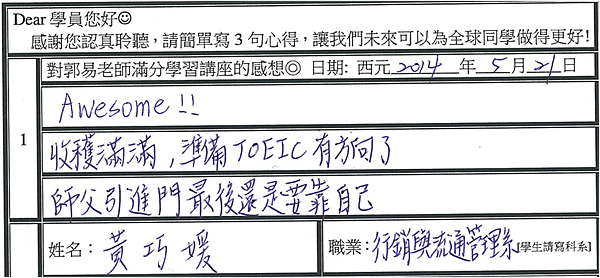 Dear 學員您好☺
感謝您認真聆聽，請簡單寫 3 句心得，讓我們未來可以為全球同學做得更好!
對郭易老師滿分學習講座的感想◎ 日期: 西元 2014 年 5 月 21 日
1
Awesome!!
收穫滿滿，準備TOEIC有方向了
師父引進門最後還是要靠自己
姓名：黃巧媛 職業：行銷與流通管理系[學生請寫科系]